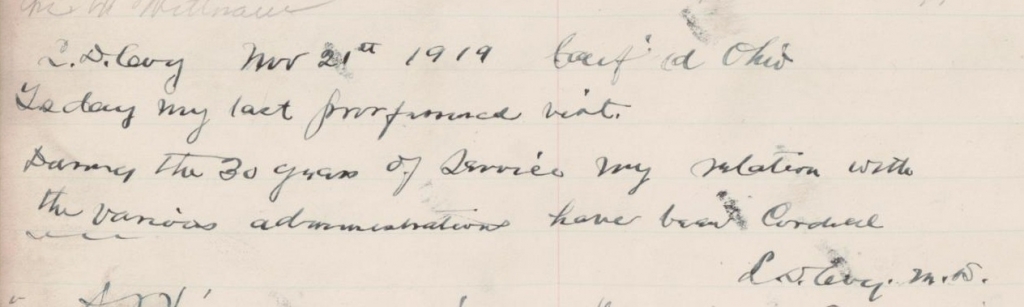 L. D. Coy Nov 21st 1919 Canf'ld Ohio
Today my last professional visit.
During the 30 years of Service my relation with
the various administrations have been Cordial
L. D. Coy. M. D.